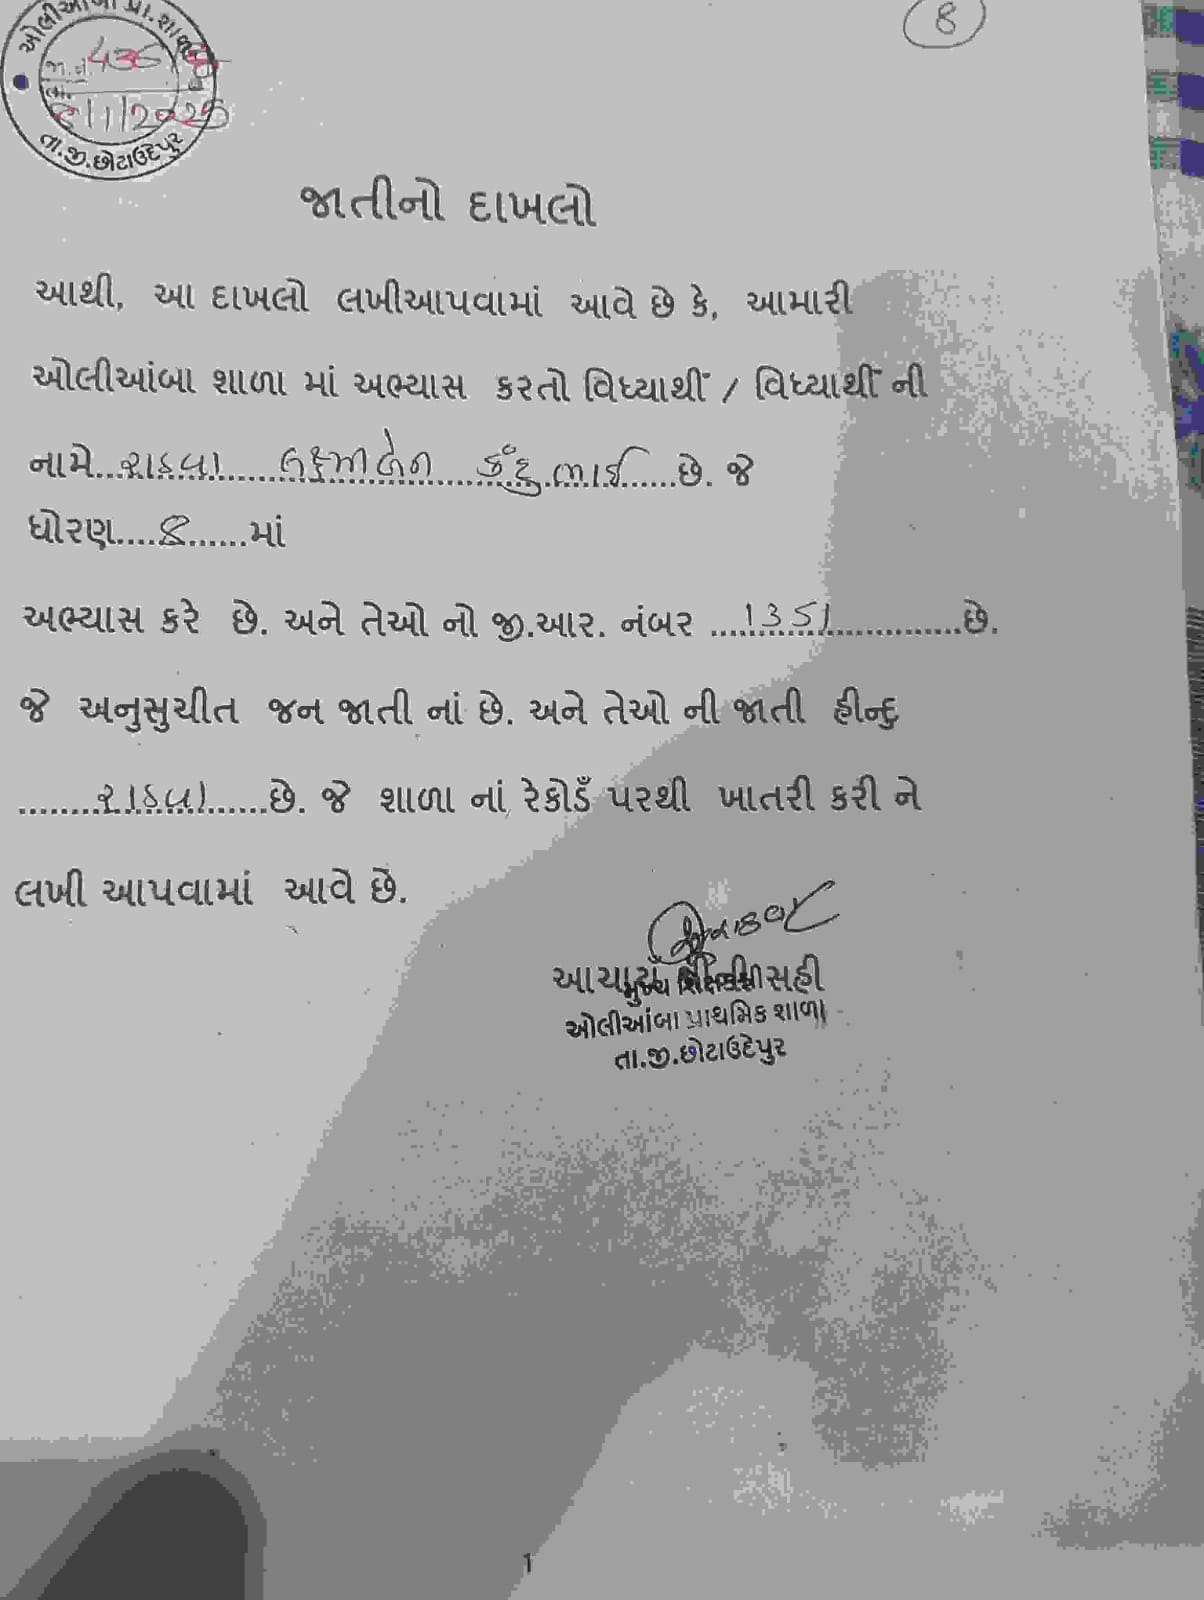 8
ઓલીઆંબા પ્રા. શાળા
જા.નં. 436
તા. 8/1/2025
તા.જી.છોટાઉદેપુર
જાતીનો દાખલો
આથી, આ દાખલો લખીઆપવામાં આવે છે કે, આમારી
ઓલીઆંબા શાળા માં અભ્યાસ કરતો વિધ્યાર્થી / વિધ્યાર્થી ની
નામે...રાઠવા.....લક્ષ્મીબેન ભાઈ......છે. જે
ધોરણ....8......માં
અભ્યાસ કરે છે. અને તેઓ નો જી.આર. નંબર ....1351..............છે.
જે અનુસુચીત જન જાતી નાં છે. અને તેઓ ની જાતી હીન્દુ
........રાઠવા......છે. જે શાળા નાં રેકોર્ડ પરથી ખાતરી કરી ને
લખી આપવામાં આવે છે.
આચાર્ય શ્રીની સહી
મુખ્ય શિક્ષકશ્રી
ઓલીઆંબા પ્રાથમિક શાળા
તા.જી.છોટાઉદેપુર
1